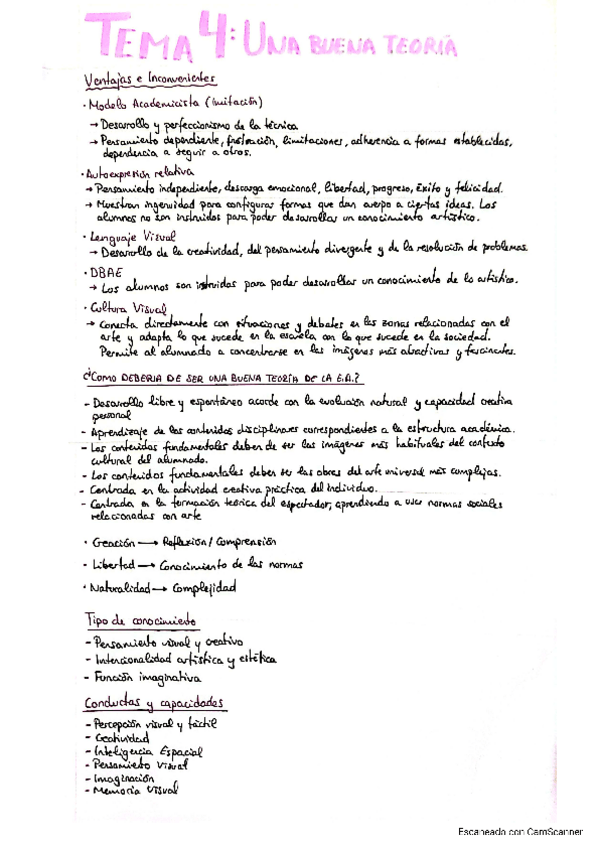 TEMA 4: UNA BUENA TEORÍA
Ventajas e Inconvenientes
· Modelo Academicista (imitación)
→ Desarrollo y perfeccionismo de la técnica
→ Pensamiento dependiente, frustración, limitaciones, adherencia a formas establecidas,
dependencia a seguir a otros.
· Autoexpresión relativa
→ Pensamiento independiente, descarga emocional, libertad, progreso, éxito y felicidad.
→ Muestran ingenuidad para configurar formas que dan cuerpo a ciertas ideas. Los
alumnos no son instruidos para poder desarrollar un conocimiento artístico.
· Lenguaje Visual
→ Desarrollo de la creatividad, del pensamiento divergente y de la resolución de problemas.
· DBAE
→ Los alumnos son instruidos para poder desarrollar un conocimiento de lo artístico.
· Cultura Visual
→ Conecta directamente con situaciones y debates en las zonas relacionadas con el
arte y adapta lo que sucede en la escuela con lo que sucede en la sociedad.
Permite al alumnado a concentrarse en las imágenes más atractivas y fascinantes.
¿COMO DEBERIA DE SER UNA BUENA TEORÍA DE LA E.A.?
- Desarrollo libre y espontáneo acorde con la evolución natural y capacidad creativa
personal
- Aprendizaje de los contenidos disciplinares correspondientes a la estructura académica.
- Los contenidos fundamentales deben de ser las imágenes más habituales del contexto
cultural del alumnado.
- Los contenidos fundamentales deben ser las obras del arte universal más complejas.
- Centrada en la actividad creativa práctica del individuo.
- Centrada en la formación teórica del espectador, aprendiendo a usar normas sociales
relacionadas con arte
· Creación → Reflexión / Comprensión
· Libertad → Conocimiento de las normas
· Naturalidad → Complejidad
Tipo de conocimiento
- Pensamiento visual y creativo
- Intencionalidad artística y estética
- Función imaginativa
Conductas y capacidades
- Percepción visual y táctil
- Creatividad
- Inteligencia Espacial
- Pensamiento Visual
- Imaginación
- Memoria Visual
Escaneado con CamScanner